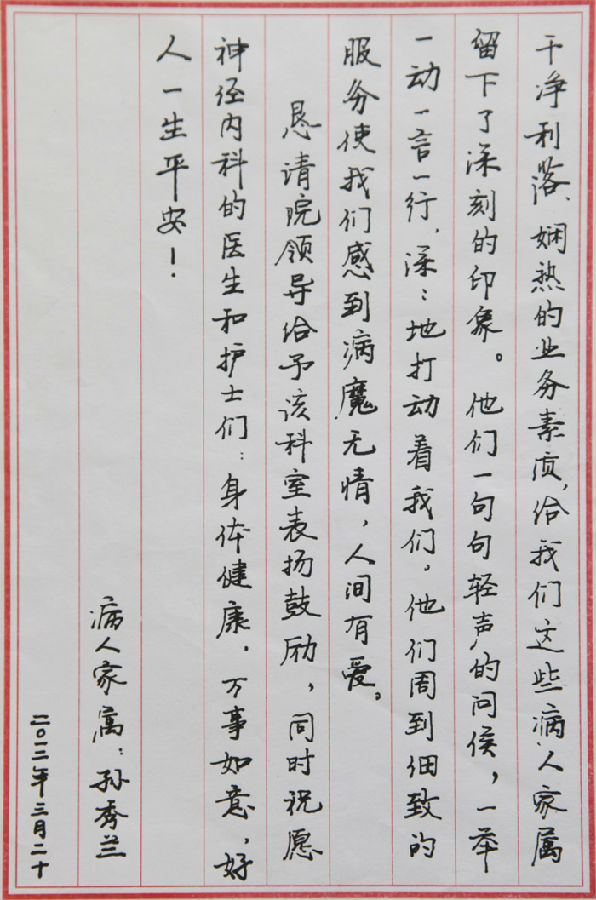 干净利落、娴熟的业务素质，给我们这些病人家属
留下了深刻的印象。他们一句句轻声的问侯，一举
一动一言一行，深：地打动着我们，他们周到细致的
服务使我们感到病魔无情，人间有爱。
恳请院领导给予该科室表扬鼓励，同时祝愿
神经内科的医生和护士们：身体健康．万事如意，好
人一生平安！
病人家属：孙秀兰
二〇一二年三月二十